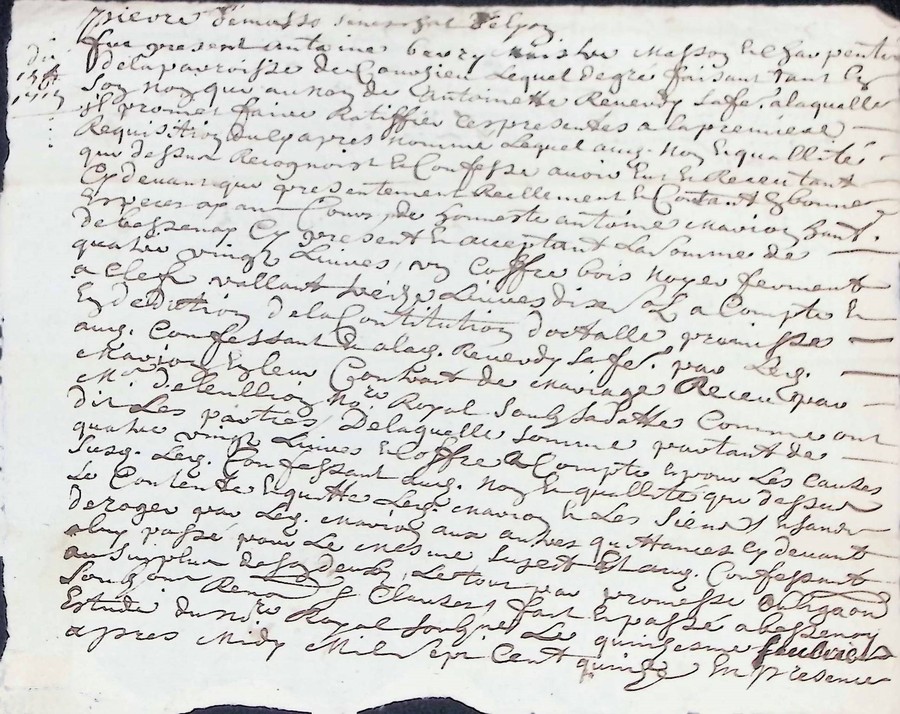 pierre
fut present antoine berry maistre masson et charpentier
de la parroisse de Lequel de gré faisant tant en
Son nom que au nom de antoinette Reverdy sa fe. a laquelle
il promet faire Ratiffier ces presentes a la premiere
Requisition du cy apres nommé Lequel aud. nom et quallité
que dessus Recognoist et Confesse avoir Eu et Receu tant
Cy devant que presentement Reellement et Contant En bonnes
Especes ayant Cours, de honneste antoine marion
de bessenay Cy present et acceptant La somme de
quatre vingt Livres, un Coffre bois noyer fermant
a clef vallant treize Livres dix s. a Compte et
En deduction de la Constitution dottalle promise
aud. Confessant et a lad. Reverdy sa fe. par led.
marion En leur Contrant de mariage Receu par
Me. no.re Royal Soub sa datte Comme ont
dit Les parties, De laquelle somme partant de
quatre vingt Livres et Coffre a Compte et pour les Causes
Susd. Led. Confessant aud. nom et quallité que dessus
Se Contente et quitte Led. marion et Les Siens Sans
deroger par Led. marion aux autres quittances Cy devant
a luy passé pour Le mesme Sujest Et aud. Confessant
au Surplus de son deub, Le tout par promesse obligaon
Soubzon Renon & Clauses fait Et passé a bessenay
Estude du no.re Royal Soubz.né Le quinziesme
apres Midy Mil Sept Cent quinze En presence